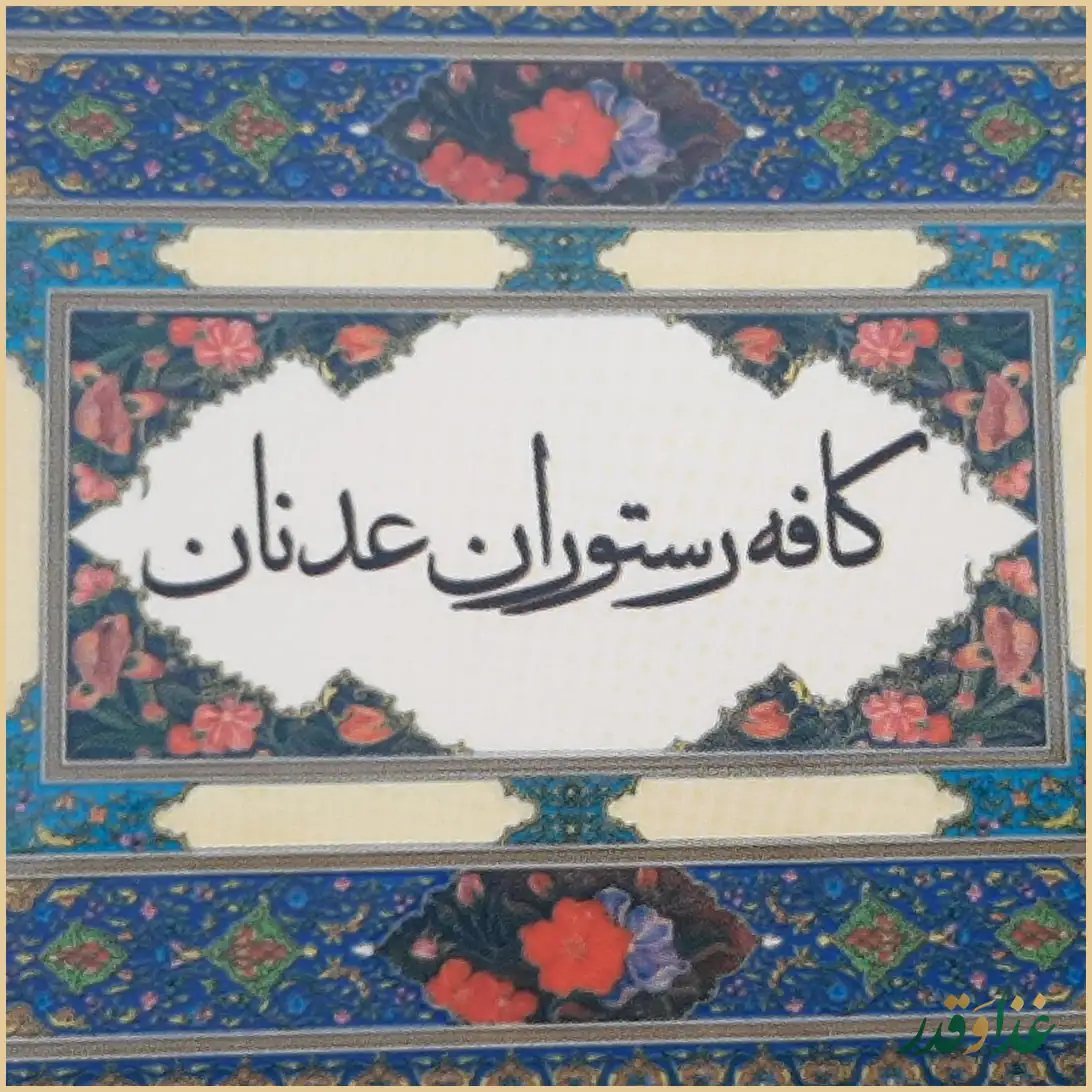 کافه رستوران عدنان
غذا وَ قدر